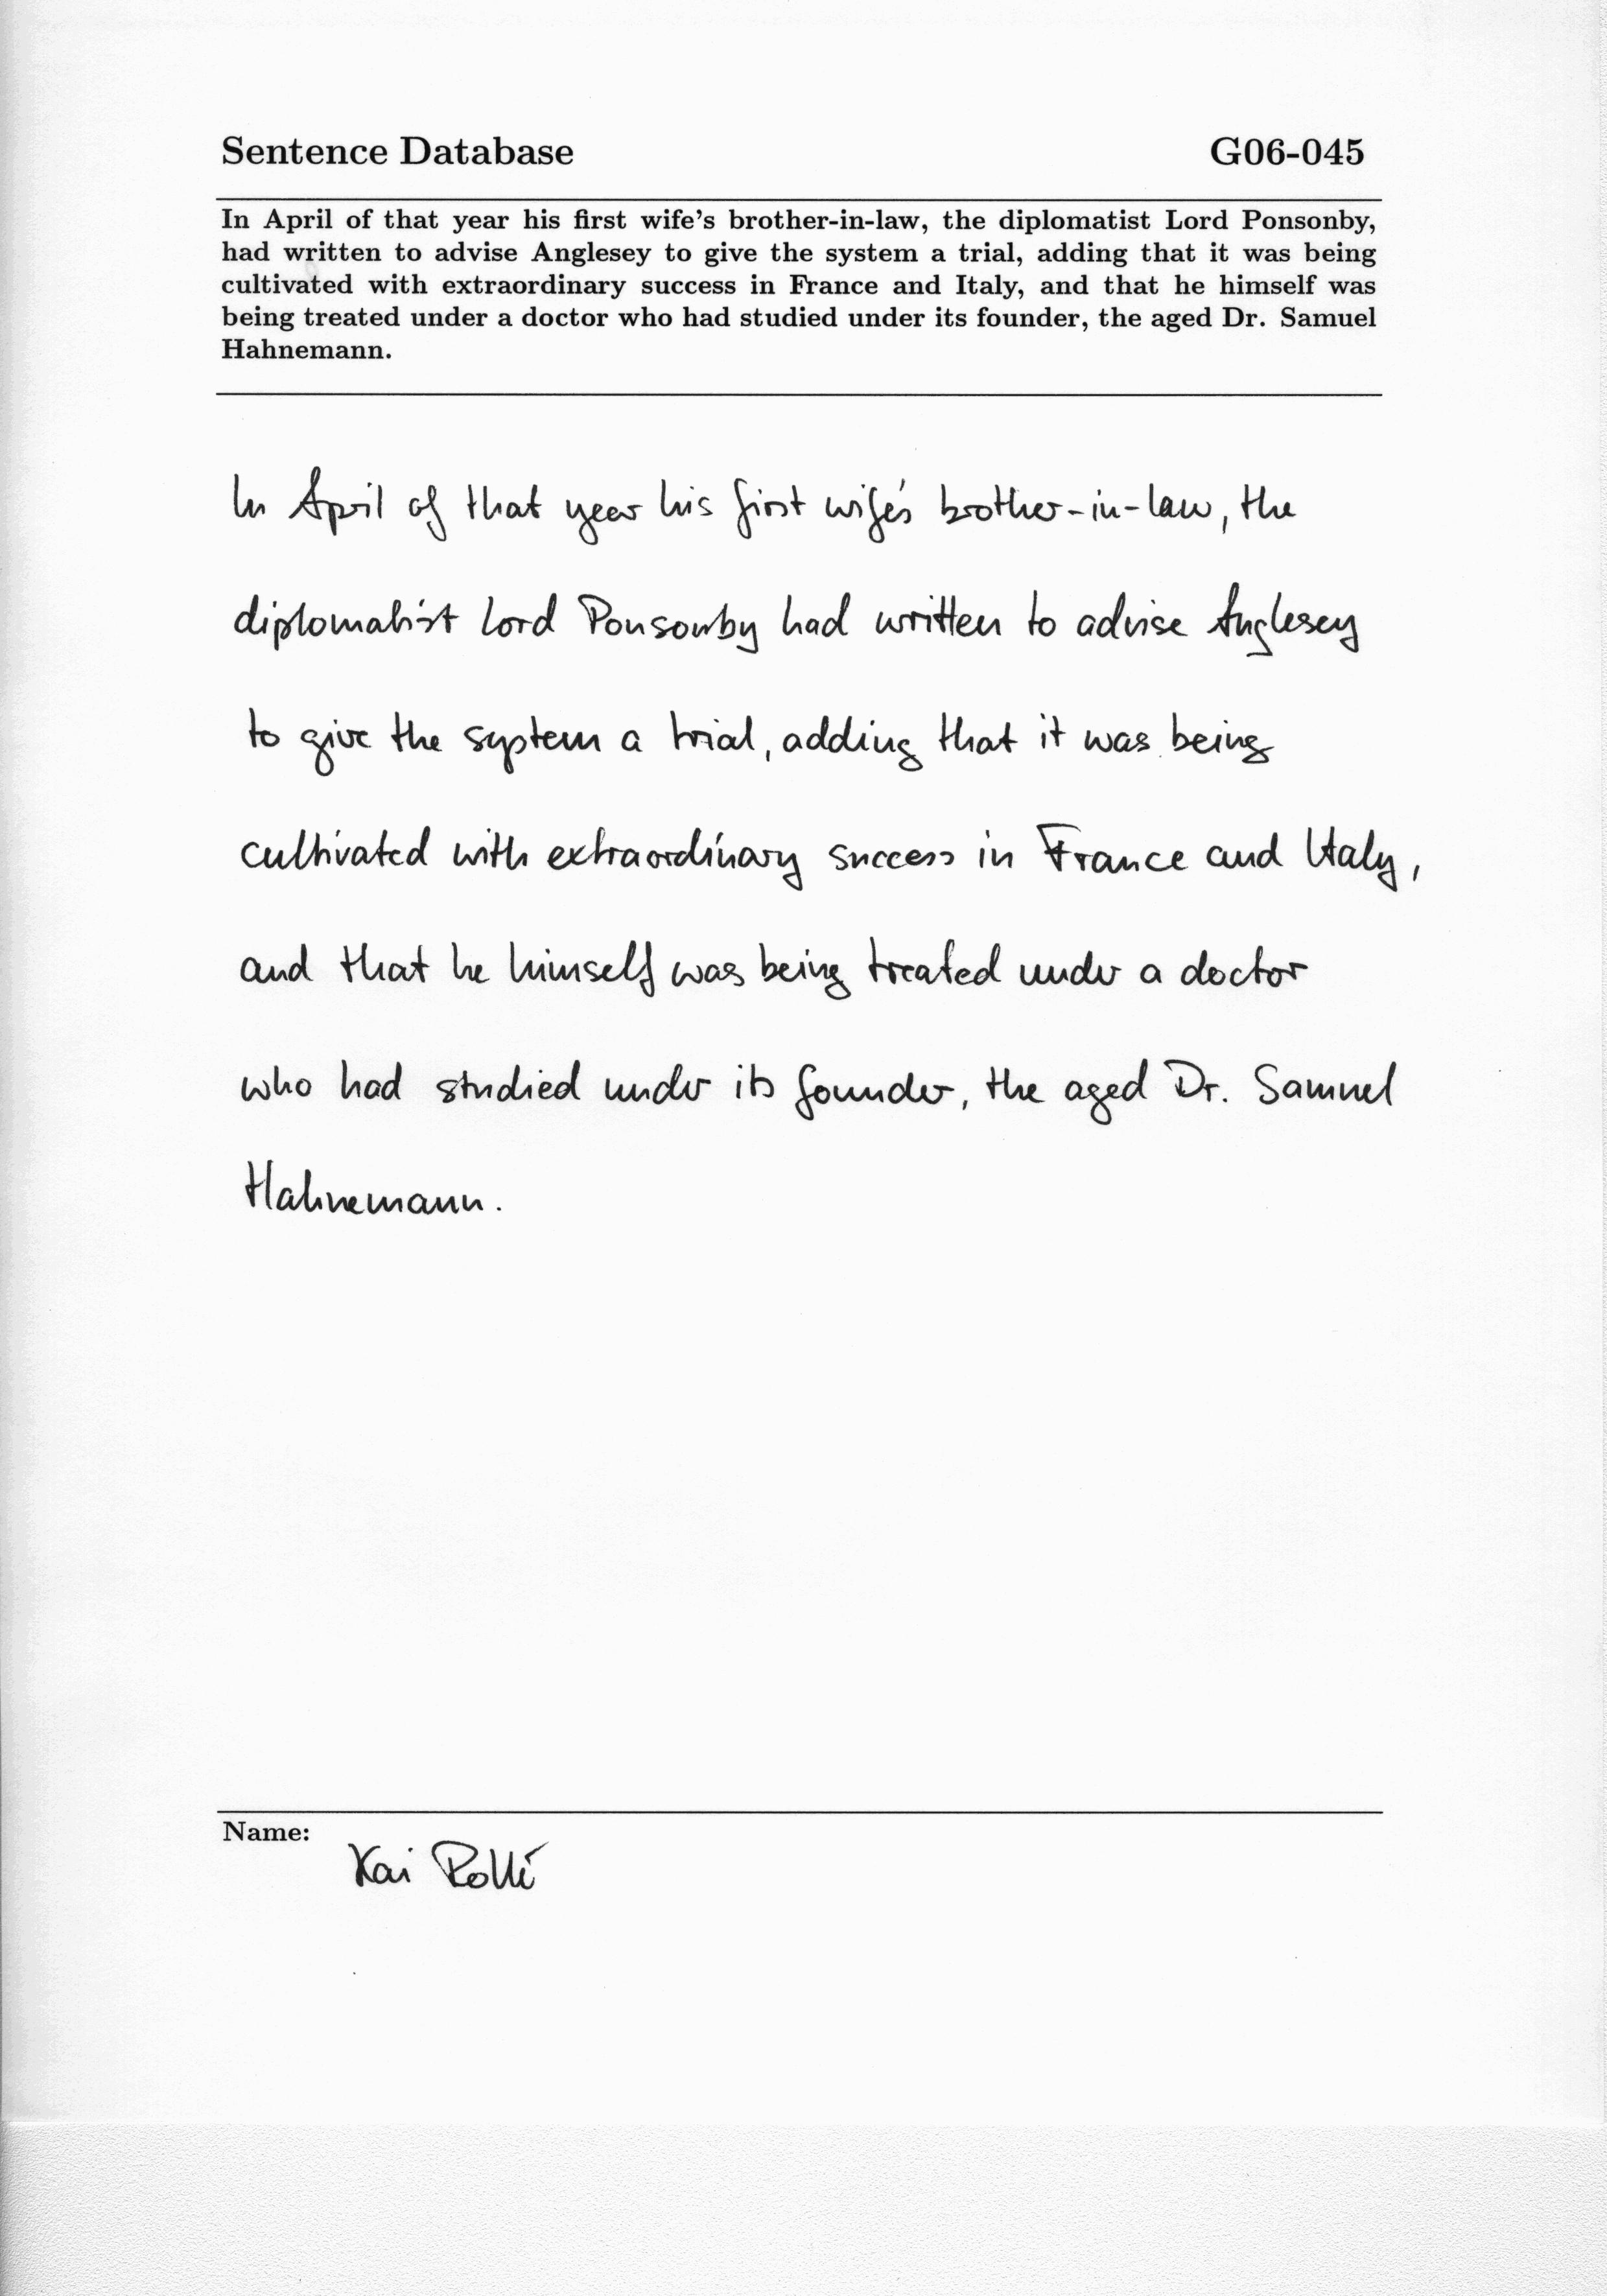 Sentence Database G06-045
In April of that year his first wife's brother-in-law, the diplomatist Lord Ponsonby,
had written to advise Anglesey to give the system a trial, adding that it was being
cultivated with extraordinary success in France and Italy, and that he himself was
being treated under a doctor who had studied under its founder, the aged Dr. Samuel
Hahnemann.
In April of that year his first wife's brother-in-law, the
diplomatist Lord Ponsonby had written to advise Anglesey
to give the system a trial, adding that it was being
cultivated with extraordinary success in France and Italy,
and that he himself was being treated under a doctor
who had studied under its founder, the aged Dr. Samuel
Hahnemann.
Name:
Kai